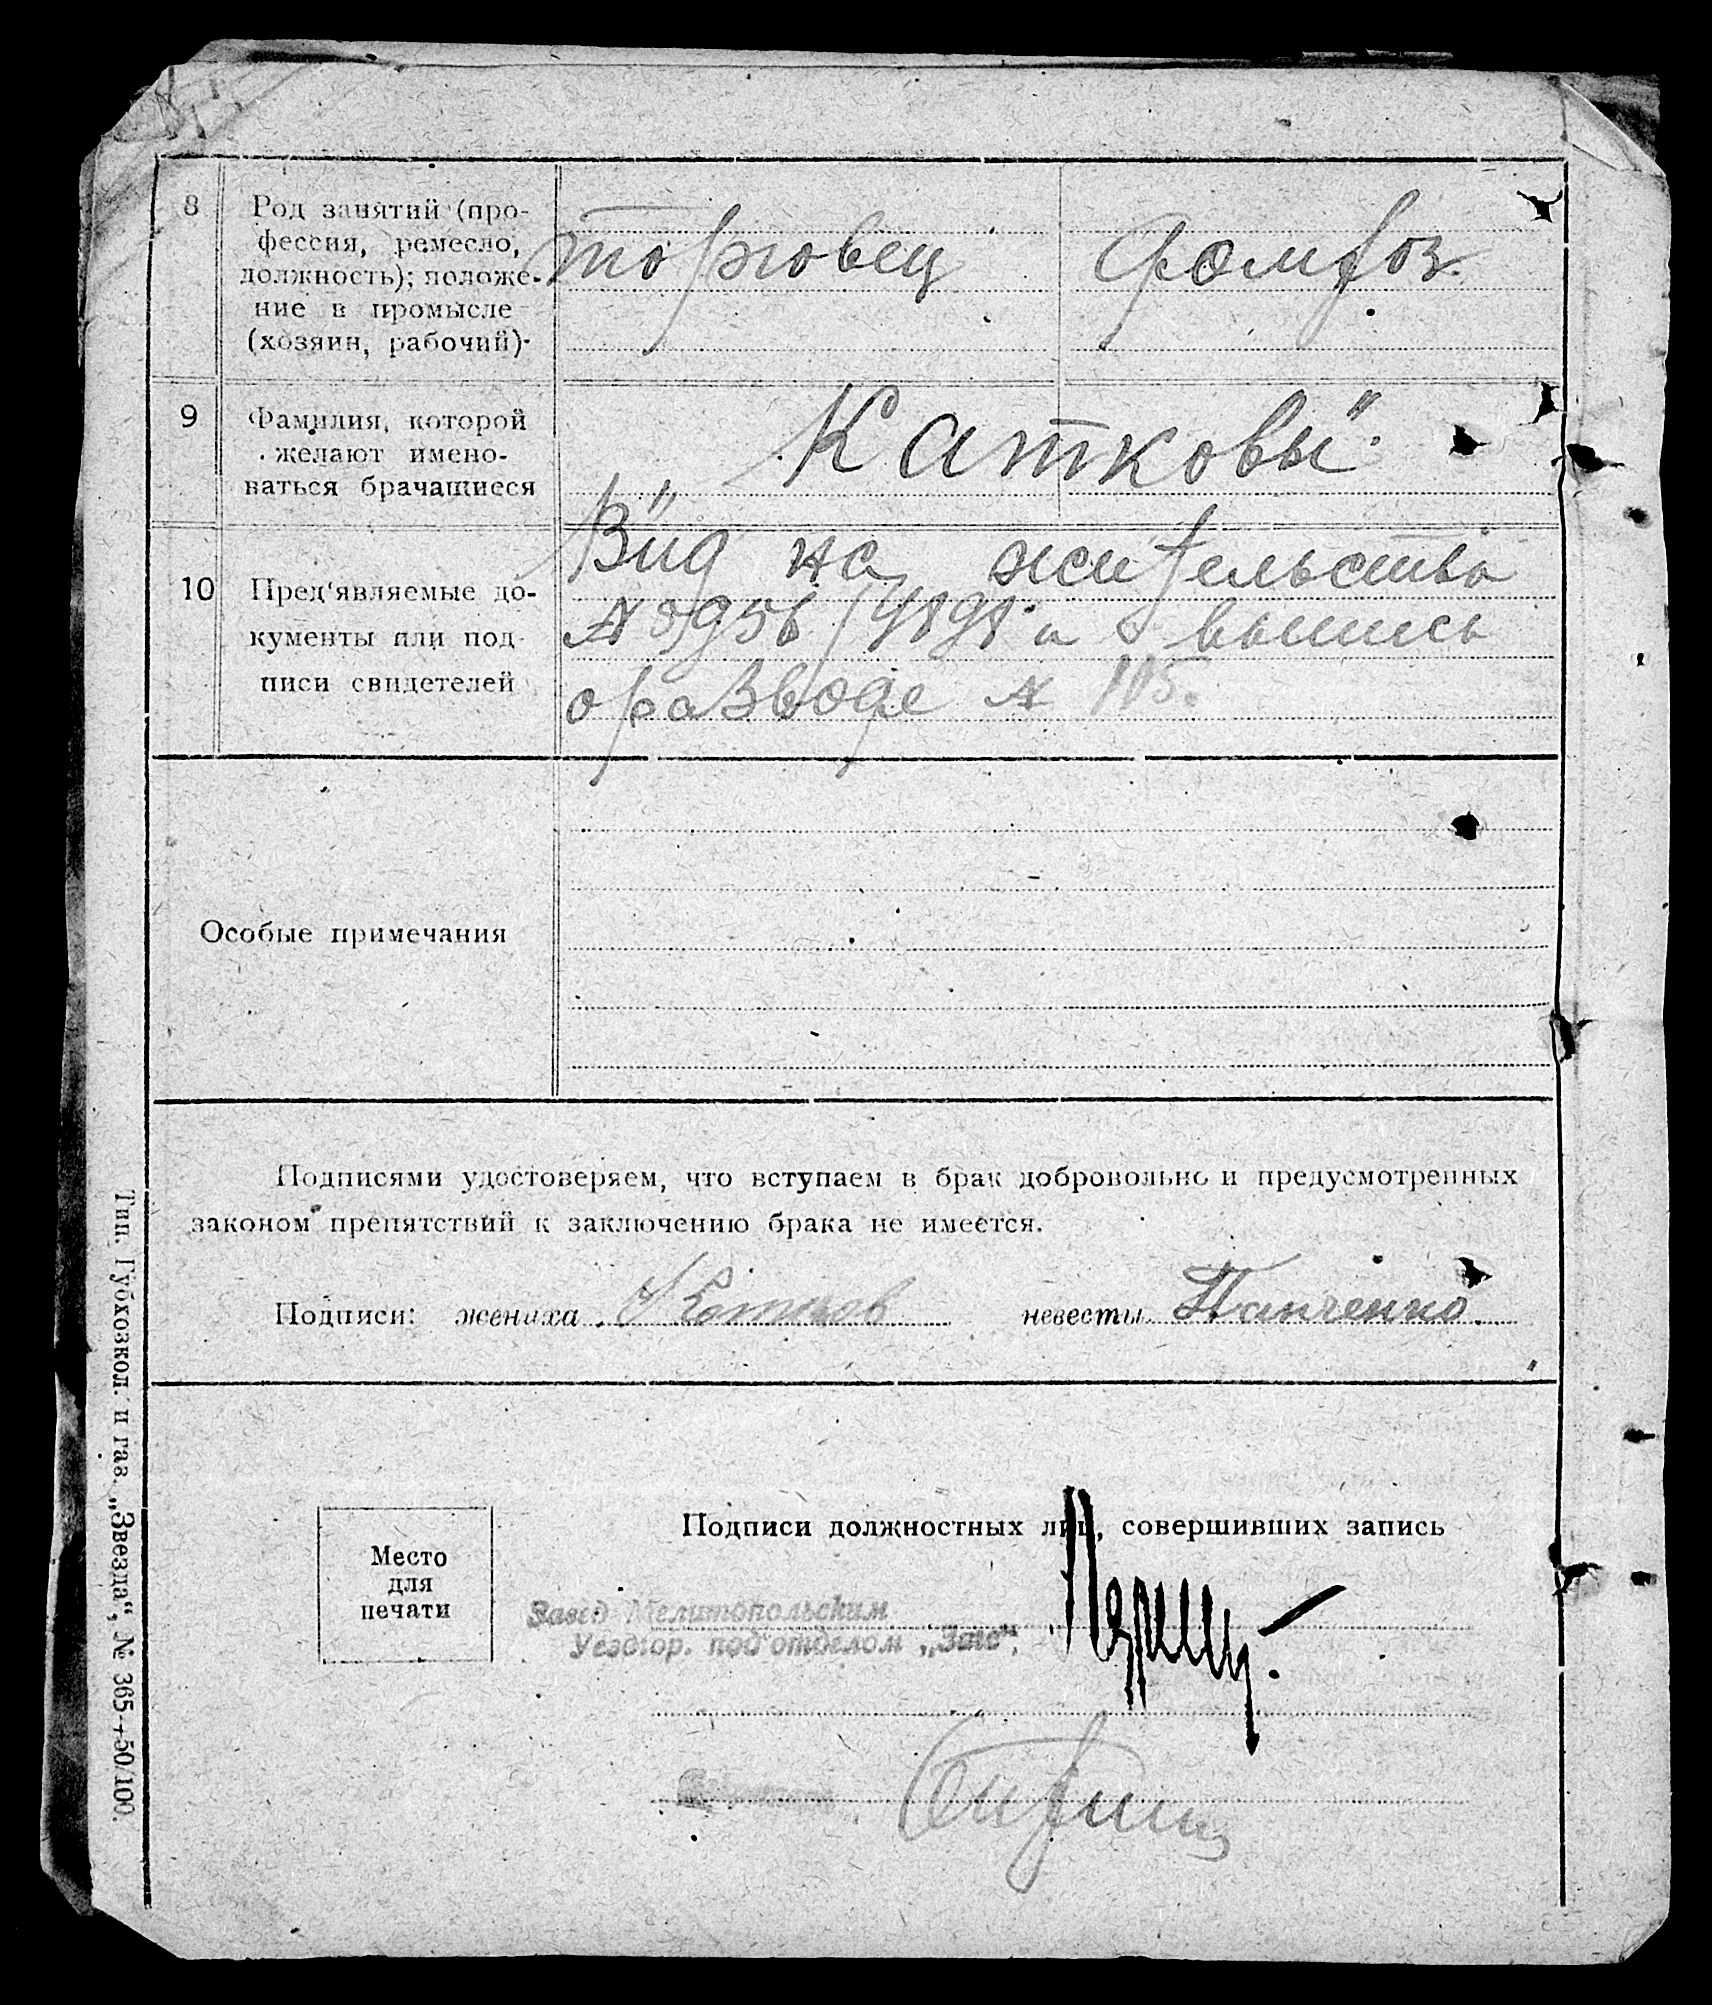 8 Род занятий (про-
фессия, ремесло,
должность); положе-
ние в промысле
(хозяин, рабочий)·
торговец
домхоз.
9 Фамилия, которой
желают имено-
ваться брачащиеся
"Катковы".
10 Пред'являемые до-
кументы или под-
писи свидетелей
Вид на жительство
и выпись
о разводе № 105.
Особые примечания
Подписями удостоверяем, что вступаем в брак добровольно и предусмотренных
законом препятствий к заключению брака не имеется.
Подписи: жениха Катков невесты Панченко.
Место
для
печати
Подписи должностных лиц, совершивших запись
Завед Мелитопольским
Уездгор. под'отделом „Загс“.
Тип. Губхозкол. и газ. „Звезда“, № 365-+50/100.